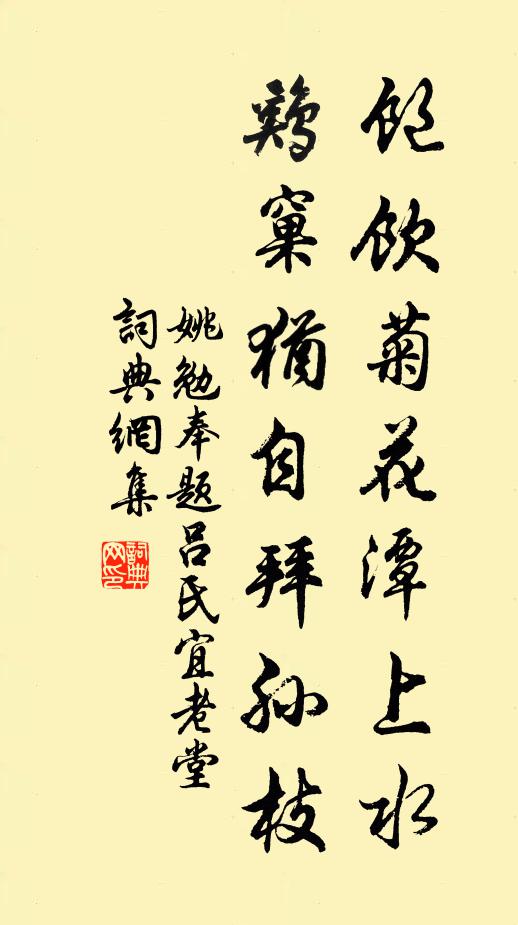 飽飲菊花潭上水
鷄窠猶自拜孙枝
姚勉奉题吕氏宜老堂
詞典網集
詞典网印